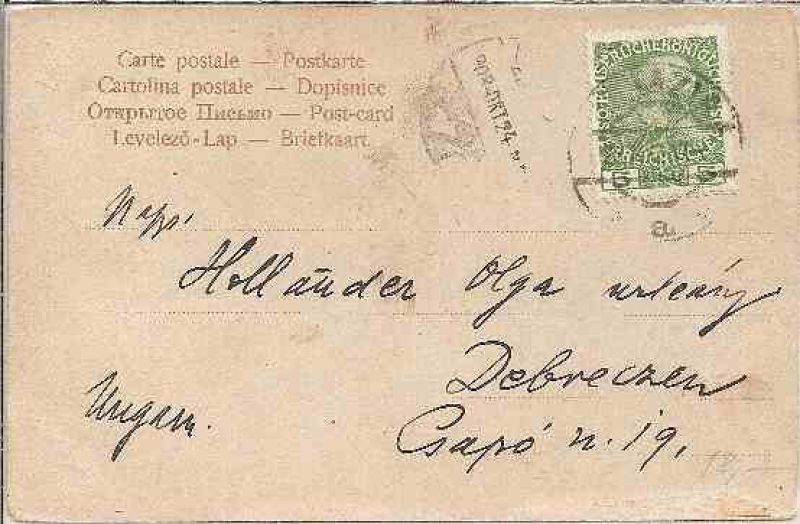 Carte postale — Postkarte
Cartolina postale — Dopisnice
Открытое Письмо — Post-card
Levelező-Lap — Briefkaart
908 OKT 24
5 5
a
Nagys.
Hollánder Olga urleány
Debreczen
Ungarn.
Csapó u. 19.